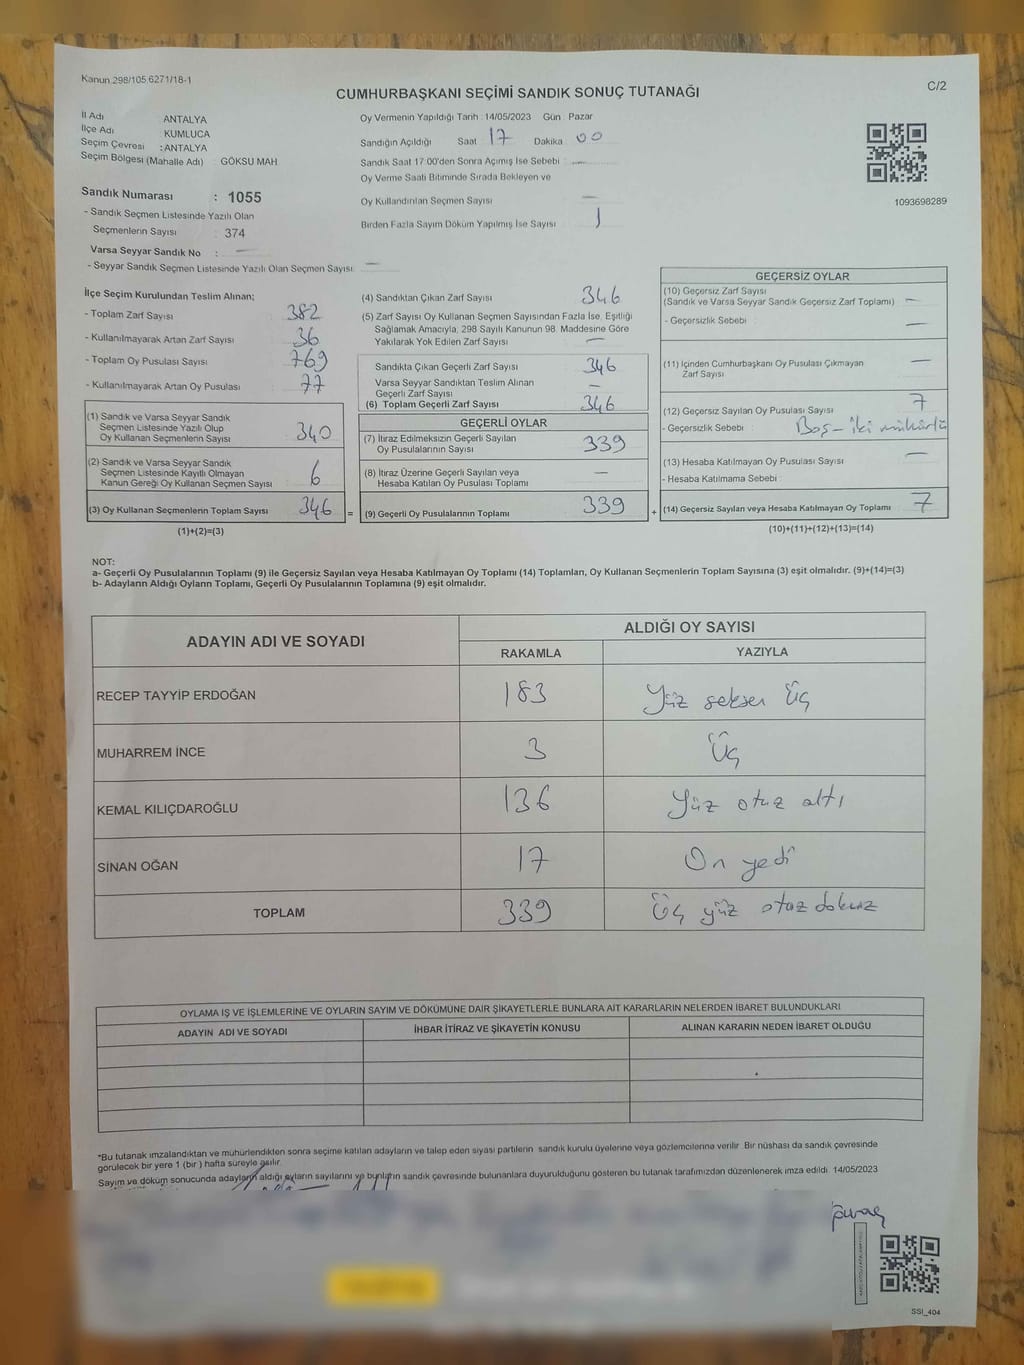 Kanun 298/105,6271/18-1
C/2
CUMHURBAŞKANI SEÇİMİ SANDIK SONUÇ TUTANAĞI
İl Adı ANTALYA
İlçe Adı : KUMLUCA
Seçim Çevresi : ANTALYA
Seçim Bölgesi (Mahalle Adı) : GÖKSU MAH
Sandık Numarası : 1055
- Sandık Seçmen Listesinde Yazılı Olan
Seçmenlerin Sayısı : 374
Varsa Seyyar Sandık No : —
- Seyyar Sandık Seçmen Listesinde Yazılı Olan Seçmen Sayısı: —
Oy Vermenin Yapıldığı Tarih : 14/05/2023 Gün Pazar
Sandığın Açıldığı Saat 17 Dakika 00
Sandık Saat 17 00'den Sonra Açımış İse Sebebi : —
Oy Verme Saati Bitiminde Sırada Bekleyen ve
Oy Kullandırılan Seçmen Sayısı —
Birden Fazla Sayım Döküm Yapılmış İse Sayısı 1
1093698289
İlçe Seçim Kurulundan Teslim Alınan;
- Toplam Zarf Sayısı 382
- Kullanılmayarak Artan Zarf Sayısı 36
- Toplam Oy Pusulası Sayısı 769
- Kullanılmayarak Artan Oy Pusulası 77
(1) Sandık ve Varsa Seyyar Sandık
Seçmen Listesinde Yazılı Olup
Oy Kullanan Seçmenlerin Sayısı 340
(2) Sandık ve Varsa Seyyar Sandık
Seçmen Listesinde Kayıtlı Olmayan
Kanun Gereği Oy Kullanan Seçmen Sayısı 6
(3) Oy Kullanan Seçmenlerin Toplam Sayısı 346 =
(1)+(2)=(3)
(4) Sandıktan Çıkan Zarf Sayısı 346
(5) Zarf Sayısı Oy Kullanan Seçmen Sayısından Fazla İse, Eşitliği
Sağlamak Amacıyla, 298 Sayılı Kanunun 98. Maddesine Göre
Yakılarak Yok Edilen Zarf Sayısı —
Sandıkta Çıkan Geçerli Zarf Sayısı 346
Varsa Seyyar Sandıktan Teslim Alınan
Geçerli Zarf Sayısı —
(6) Toplam Geçerli Zarf Sayısı 346
GEÇERLİ OYLAR
(7) İtiraz Edilmeksizin Geçerli Sayılan
Oy Pusulalarının Sayısı 339
(8) İtiraz Üzerine Geçerli Sayılan veya
Hesaba Katılan Oy Pusulası Toplamı —
(9) Geçerli Oy Pusulalarının Toplamı 339 +
GEÇERSİZ OYLAR
(10) Geçersiz Zarf Sayısı
(Sandık ve Varsa Seyyar Sandık Geçersiz Zarf Toplamı) —
- Geçersizlik Sebebi : —
(11) İçinden Cumhurbaşkanı Oy Pusulası Çıkmayan
Zarf Sayısı —
(12) Geçersiz Sayılan Oy Pusulası Sayısı 7
- Geçersizlik Sebebi : Boş - iki mühürlü
(13) Hesaba Katılmayan Oy Pusulası Sayısı —
- Hesaba Katılmama Sebebi :
(14) Geçersiz Sayılan veya Hesaba Katılmayan Oy Toplamı 7
(10)+(11)+(12)+(13)=(14)
NOT:
a- Geçerli Oy Pusulalarının Toplamı (9) ile Geçersiz Sayılan veya Hesaba Katılmayan Oy Toplamı (14) Toplamları, Oy Kullanan Seçmenlerin Toplam Sayısına (3) eşit olmalıdır. (9)+(14)=(3)
b- Adayların Aldığı Oyların Toplamı, Geçerli Oy Pusulalarının Toplamına (9) eşit olmalıdır.
ADAYIN ADI VE SOYADI
ALDIĞI OY SAYISI
RAKAMLA YAZIYLA
RECEP TAYYİP ERDOĞAN 183 Yüz seksen üç
MUHARREM İNCE 3 Üç
KEMAL KILIÇDAROĞLU 136 Yüz otuz altı
SİNAN OĞAN 17 On yedi
TOPLAM 339 Üç yüz otuz dokuz
OYLAMA İŞ VE İŞLEMLERİNE VE OYLARIN SAYIM VE DÖKÜMÜNE DAİR ŞİKAYETLERLE BUNLARA AİT KARARLARIN NELERDEN İBARET BULUNDUKLARI
ADAYIN ADI VE SOYADI İHBAR İTİRAZ VE ŞİKAYETİN KONUSU ALINAN KARARIN NEDEN İBARET OLDUĞU
*Bu tutanak imzalandıktan ve mühürlendikten sonra seçime katılan adayların ve talep eden siyasi partilerin sandık kurulu üyelerine veya gözlemcilerine verilir. Bir nüshası da sandık çevresinde
görülecek bir yere 1 (bir ) hafta süreyle asılır.
Sayım ve döküm sonucunda adayların aldığı oyların sayılarını ve bunların sandık çevresinde bulunanlara duyurulduğunu gösteren bu tutanak tarafımızdan düzenlenerek imza edildi. 14/05/2023
SSI_404